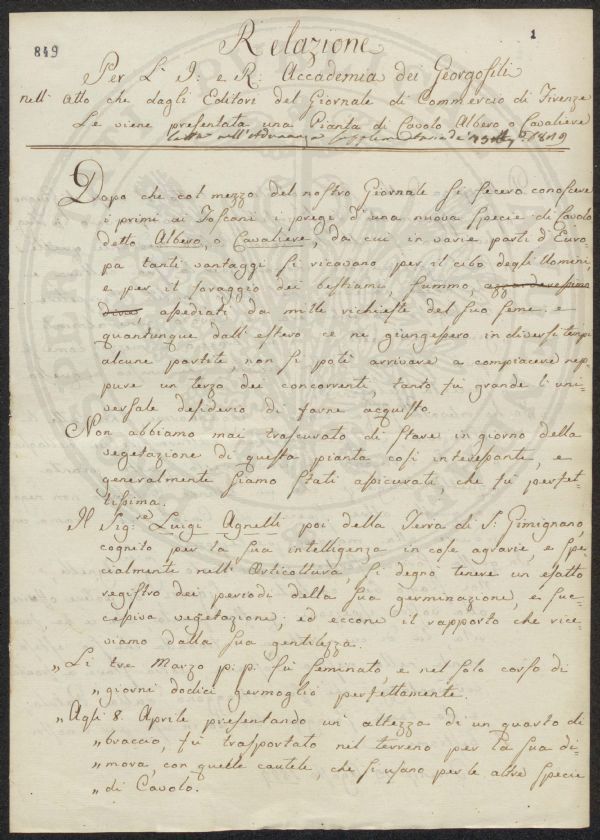 849
1
Relazione
Per L' I: e R: Accademia dei Georgofili
nell' Atto che dagli Editori del Giornale di Commercio di Firenze
Le viene presentata una Pianta di Cavolo Albero o Cavaliere
letta nell' Adunanza 1819
Dopo che col mezzo del nostro Giornale si fecero conoscere
i primi ai Toscani i pregi d'una nuova specie di Cavolo
detto Albero, o Cavaliere, da cui in varie parti d'Euro
pa tanti vantaggi si ricavano per il cibo degli Uomini,
e per il foraggio dei bestiami, fummo,
assediati da mille richieste del suo seme: e
quantunque dall'estero ce ne giungessero in diversi tempi
alcune partite, non si potè arrivare a compiacere nep=
pure un terzo dei concorrenti, tanto fù grande l'uni=
versale desiderio di farne acquisto.
Non abbiamo mai trascurato di stare in giorno della
vegetazione di questa pianta così interessante, e
generalmente siamo stati assicurati, che fù perfet=
tissima.
Il Sig:re Luigi Agnelli poi della Terra di S: Gimignano,
cognito per la sua intelligenza in cose agrarie, e spe
cialmente nell'Orticoltura, si degnò tenere un esatto
registro dei periodi della sua germinazione, e suc=
cessiva vegetazione; ed eccone il rapporto che rice=
viamo dalla sua gentilezza.
„Li tre Marzo p: p. fù seminato, e nel solo corso di
„giorni dodici germogliò perfettamente.
„Agli 8. Aprile presentando un'altezza di un quarto di
„braccio, fù trasportato nel terreno per la sua di=
„mora, con quelle cautele, che si usano per le altre specie
„di Cavolo.